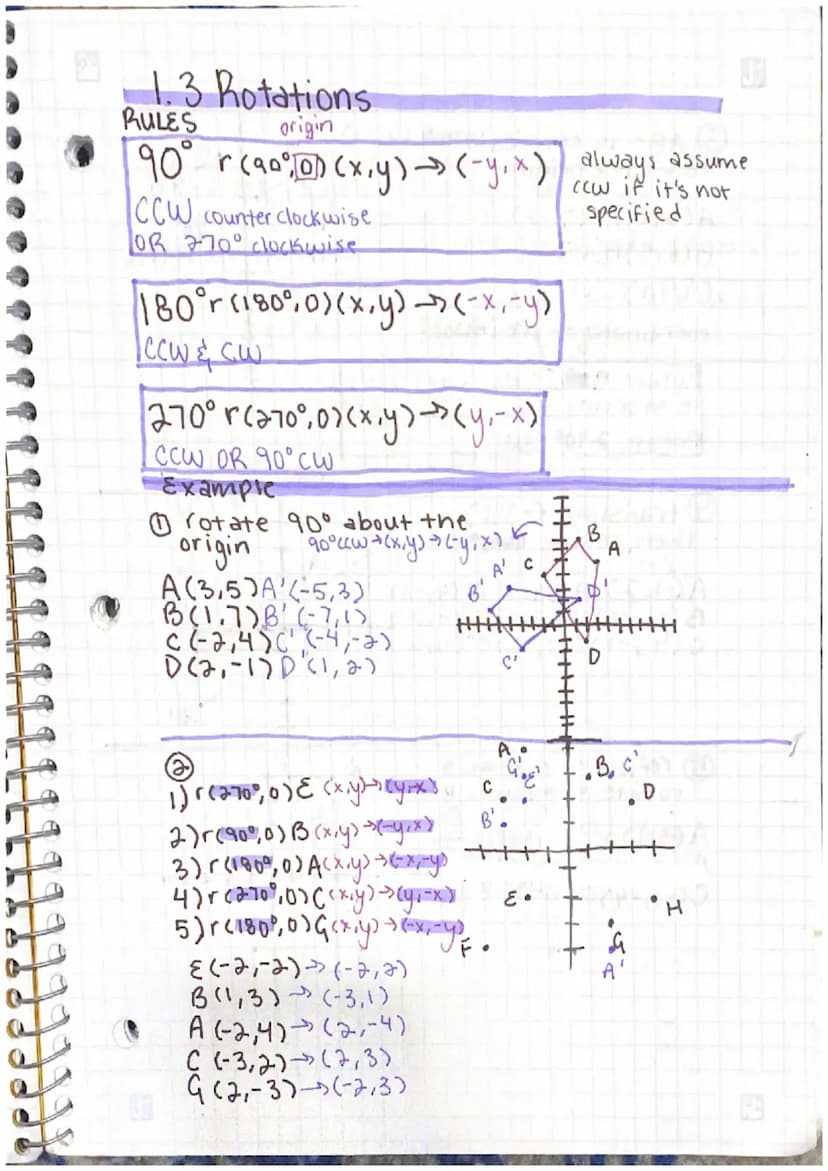 1.3 Rotations
RULES
origin
90° r(90°,0)(x,y)→(-y,x)
always assume
ccw if it's not
specified
CCW counterclockwise
OR 270° clockwise
180° r(180°,0)(x,y)→(-x,-y)
CCW & CW
270° r(270°,0)(x,y)→(y,-x)
CCW OR 90° CW
Example
① rotate 90° about the
origin 90°ccw→(x,y)→(-y,x)
A(3,5) A'(-5,3)
B(1,7) B'(-7,1)
C(-2,4) C'(-4,-2)
D(2,-1) D'(1,2)
B
A
C
A'
B'
D'
C'
D
②
1) r(270°,0) E (x,y)→(y,-x)
2) r(90°,0) B (x,y)→(-y,x)
3) r(180°,0) A (x,y)→(-x,-y)
4) r(270°,0) C (x,y)→(y,-x)
5) r(180°,0) G (x,y)→(-x,-y)
A
G'
E'
B
C'
C
D
B'
E
H
F
G
A'
E(-2,-2)→(-2,2)
B(1,3)→(-3,1)
A(-2,4)→(2,-4)
C(-3,2)→(2,3)
G(2,-3)→(-2,3)